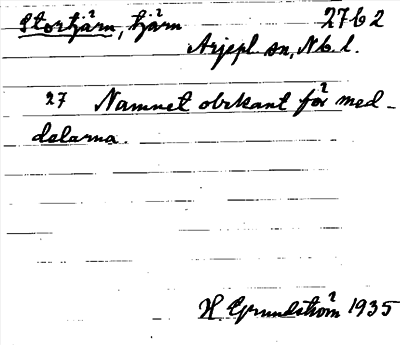 Stortjärn, tjärn 2762
Arjepl sn, Nb. l.
27 Namnet obekant för med-
delarna.
H. Grundström 1935